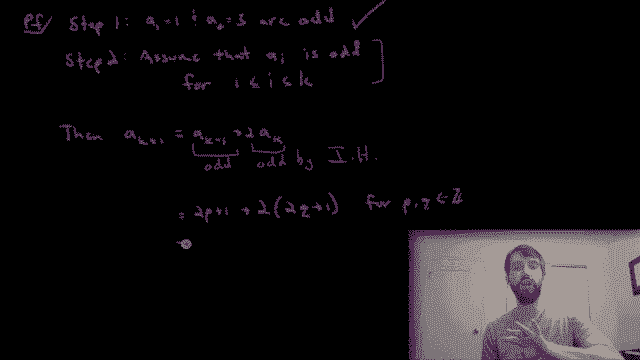 Pf/ Step 1: a₁=1 & a₂=3 are odd ✓
Step 2: Assume that aᵢ is odd
for 1 ≤ i ≤ k
Then aₖ₊₁ = aₖ₋₁ + 2 aₖ
odd odd by I.H.
= 2p+1 + 2(2q+1) for p,q ∈ ℤ
=